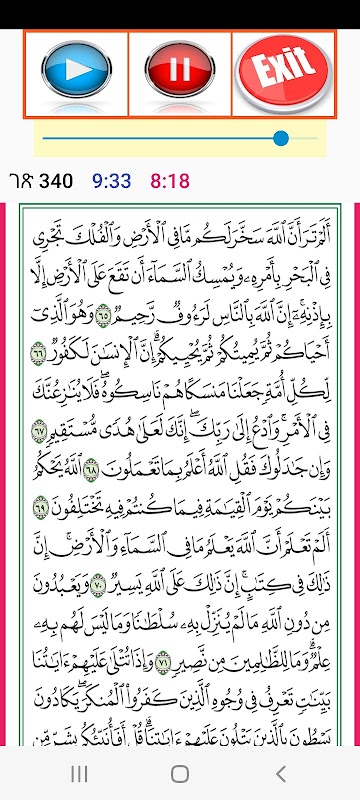 Exit
ገጽ 340 9:33 8:18
أَلَمْ تَرَ أَنَّ ٱللَّهَ سَخَّرَ لَكُم مَّا فِى ٱلْأَرْضِ وَٱلْفُلْكَ تَجْرِى
فِى ٱلْبَحْرِ بِأَمْرِهِۦ وَيُمْسِكُ ٱلسَّمَآءَ أَن تَقَعَ عَلَى ٱلْأَرْضِ إِلَّا
بِإِذْنِهِۦٓ ۗ إِنَّ ٱللَّهَ بِٱلنَّاسِ لَرَءُوفٌ رَّحِيمٌ ٦٥ وَهُوَ ٱلَّذِىٓ
أَحْيَاكُمْ ثُمَّ يُمِيتُكُمْ ثُمَّ يُحْيِيكُمْ ۗ إِنَّ ٱلْإِنسَٰنَ لَكَفُورٌ ٦٦
لِّكُلِّ أُمَّةٍ جَعَلْنَا مَنسَكًا هُمْ نَاسِكُوهُ ۖ فَلَا يُنَٰزِعُنَّكَ
فِى ٱلْأَمْرِ ۚ وَٱدْعُ إِلَىٰ رَبِّكَ ۖ إِنَّكَ لَعَلَىٰ هُدًى مُّسْتَقِيمٍ ٦٧
وَإِن جَٰدَلُوكَ فَقُلِ ٱللَّهُ أَعْلَمُ بِمَا تَعْمَلُونَ ٦٨ ٱللَّهُ يَحْكُمُ
بَيْنَكُمْ يَوْمَ ٱلْقِيَٰمَةِ فِيمَا كُنتُمْ فِيهِ تَخْتَلِفُونَ ٦٩
أَلَمْ تَعْلَمْ أَنَّ ٱللَّهَ يَعْلَمُ مَا فِى ٱلسَّمَآءِ وَٱلْأَرْضِ ۗ إِنَّ
ذَٰلِكَ فِى كِتَٰبٍ ۚ إِنَّ ذَٰلِكَ عَلَى ٱللَّهِ يَسِيرٌ ٧٠ وَيَعْبُدُونَ
مِن دُونِ ٱللَّهِ مَا لَمْ يُنَزِّلْ بِهِۦ سُلْطَٰنًا وَمَا لَيْسَ لَهُم بِهِۦ
عِلْمٌ ۗ وَمَا لِلظَّٰلِمِينَ مِن نَّصِيرٍ ٧١ وَإِذَا تُتْلَىٰ عَلَيْهِمْ ءَايَٰتُنَا
بَيِّنَٰتٍ تَعْرِفُ فِى وُجُوهِ ٱلَّذِينَ كَفَرُوا۟ ٱلْمُنكَرَ ۖ يَكَادُونَ
يَسْطُونَ بِٱلَّذِينَ يَتْلُونَ عَلَيْهِمْ ءَايَٰتِنَا ۗ قُلْ أَفَأُنَبِّئُكُم بِشَرٍّ مِّن